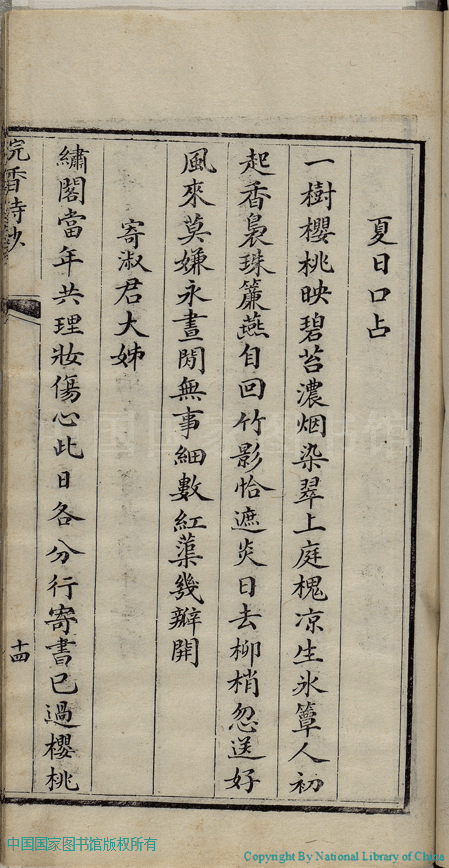 夏日口占
一樹櫻桃映碧苔濃烟染翠上庭槐凉生氷簟人初
起香裊珠簾燕自回竹影恰遮炎日去柳梢忽送好
風來莫嫌永晝閒無事細數紅蕖幾瓣開
寄淑君大姊
繡閣當年共理妝傷心此日各分行寄書已過櫻桃
浣香詩鈔
十四
中国国家图书馆版权所有
Copyright By National Library of China